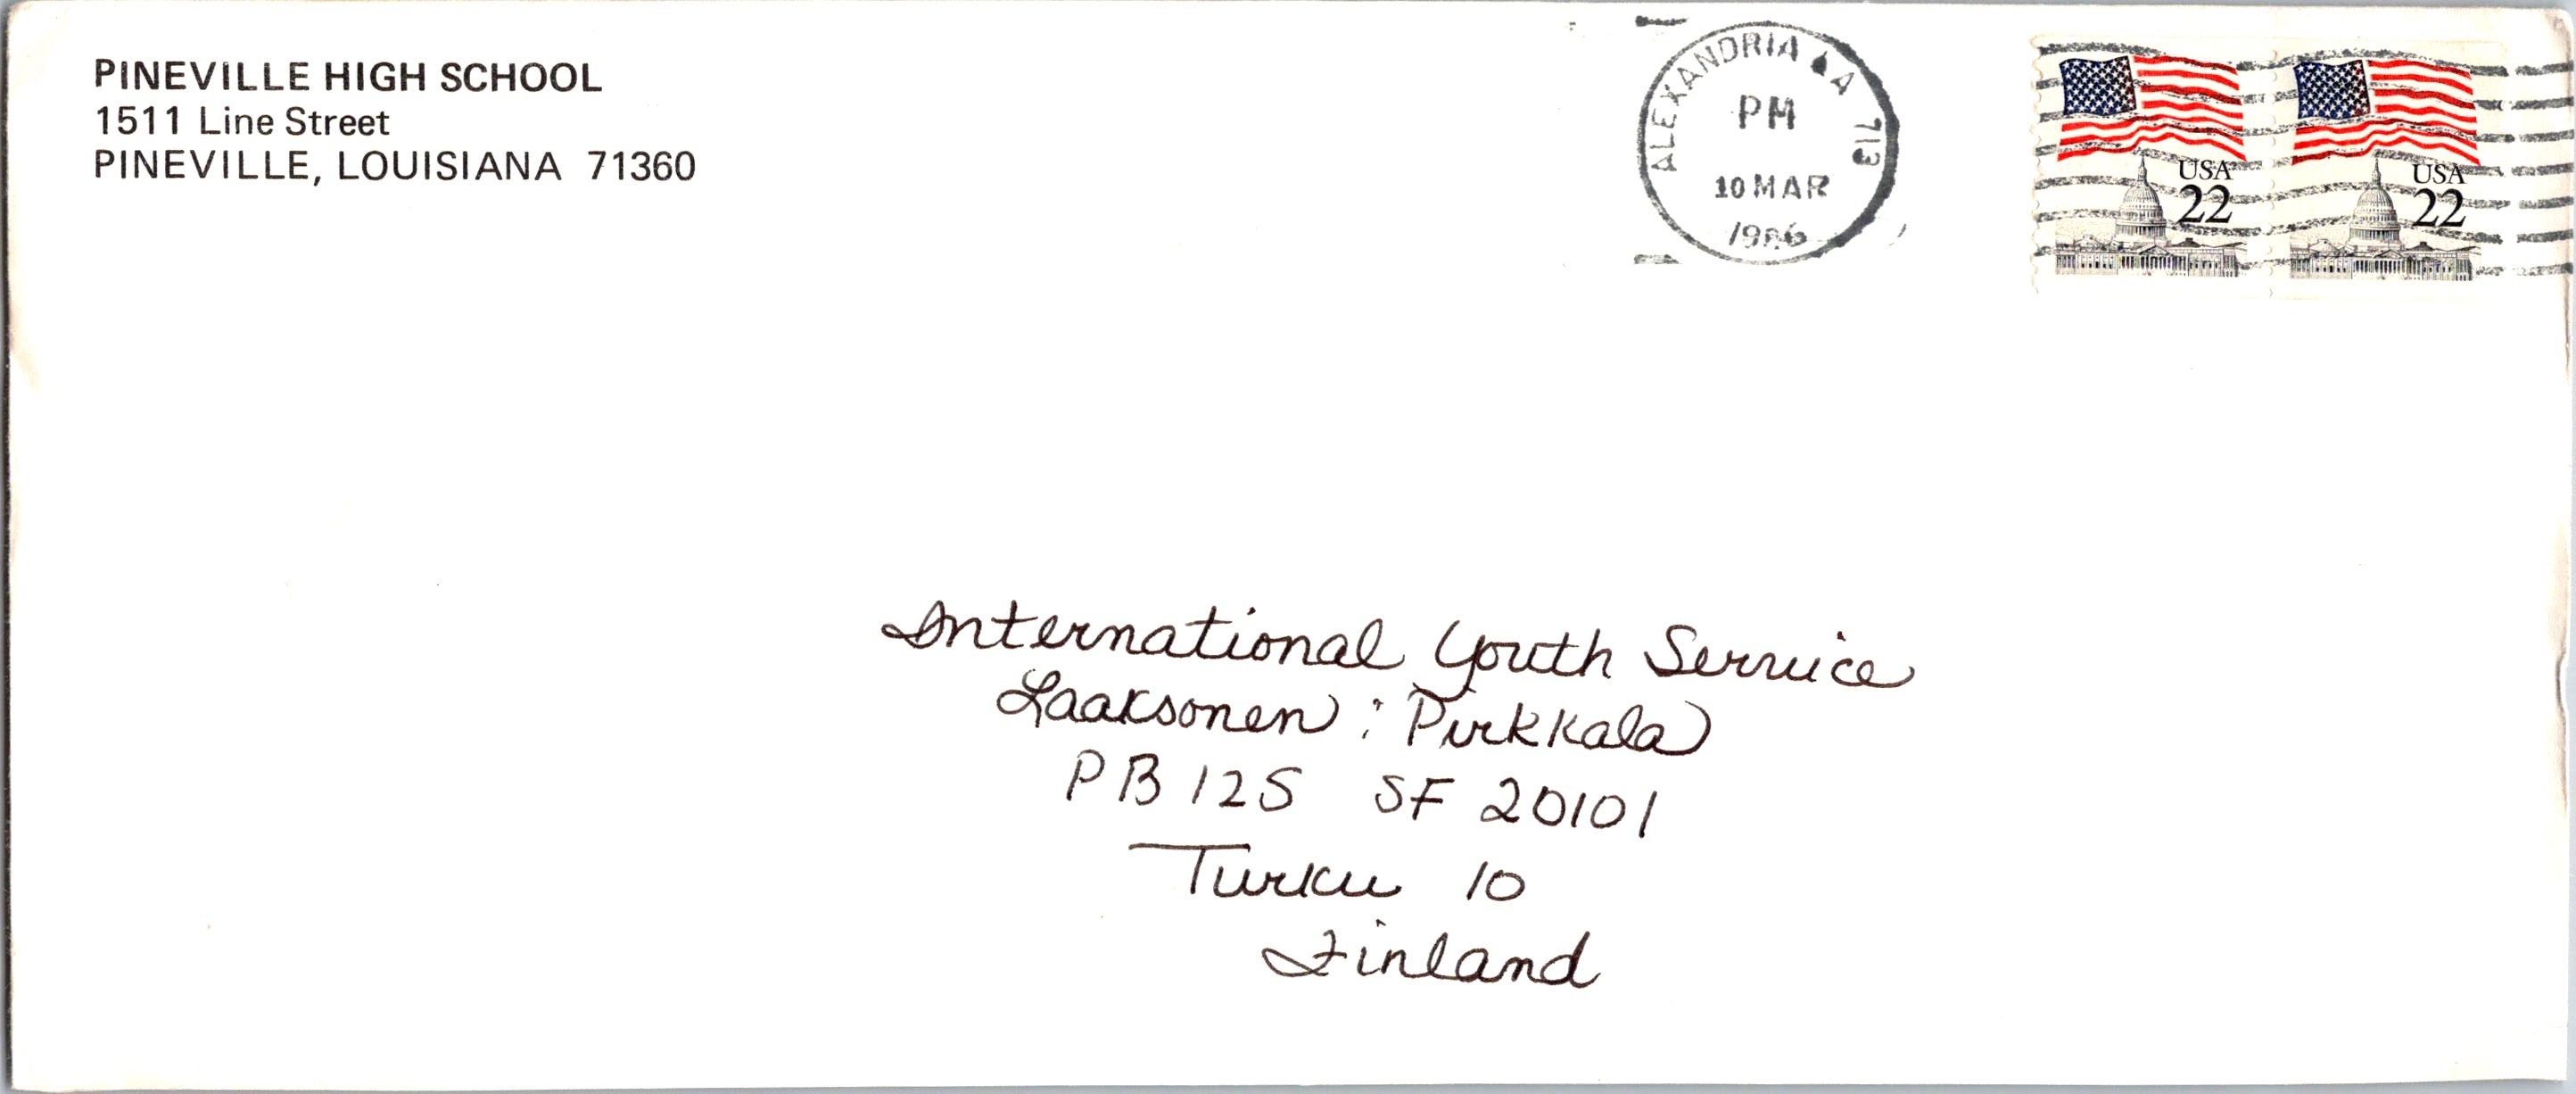 PINEVILLE HIGH SCHOOL
1511 Line Street
PINEVILLE, LOUISIANA 71360
ALEXANDRIA LA 713
PM
10 MAR
1986
USA
22
USA
22
International Youth Service
Laaksonen : Pirkkala
PB 125 SF 20101
Turku 10
Finland